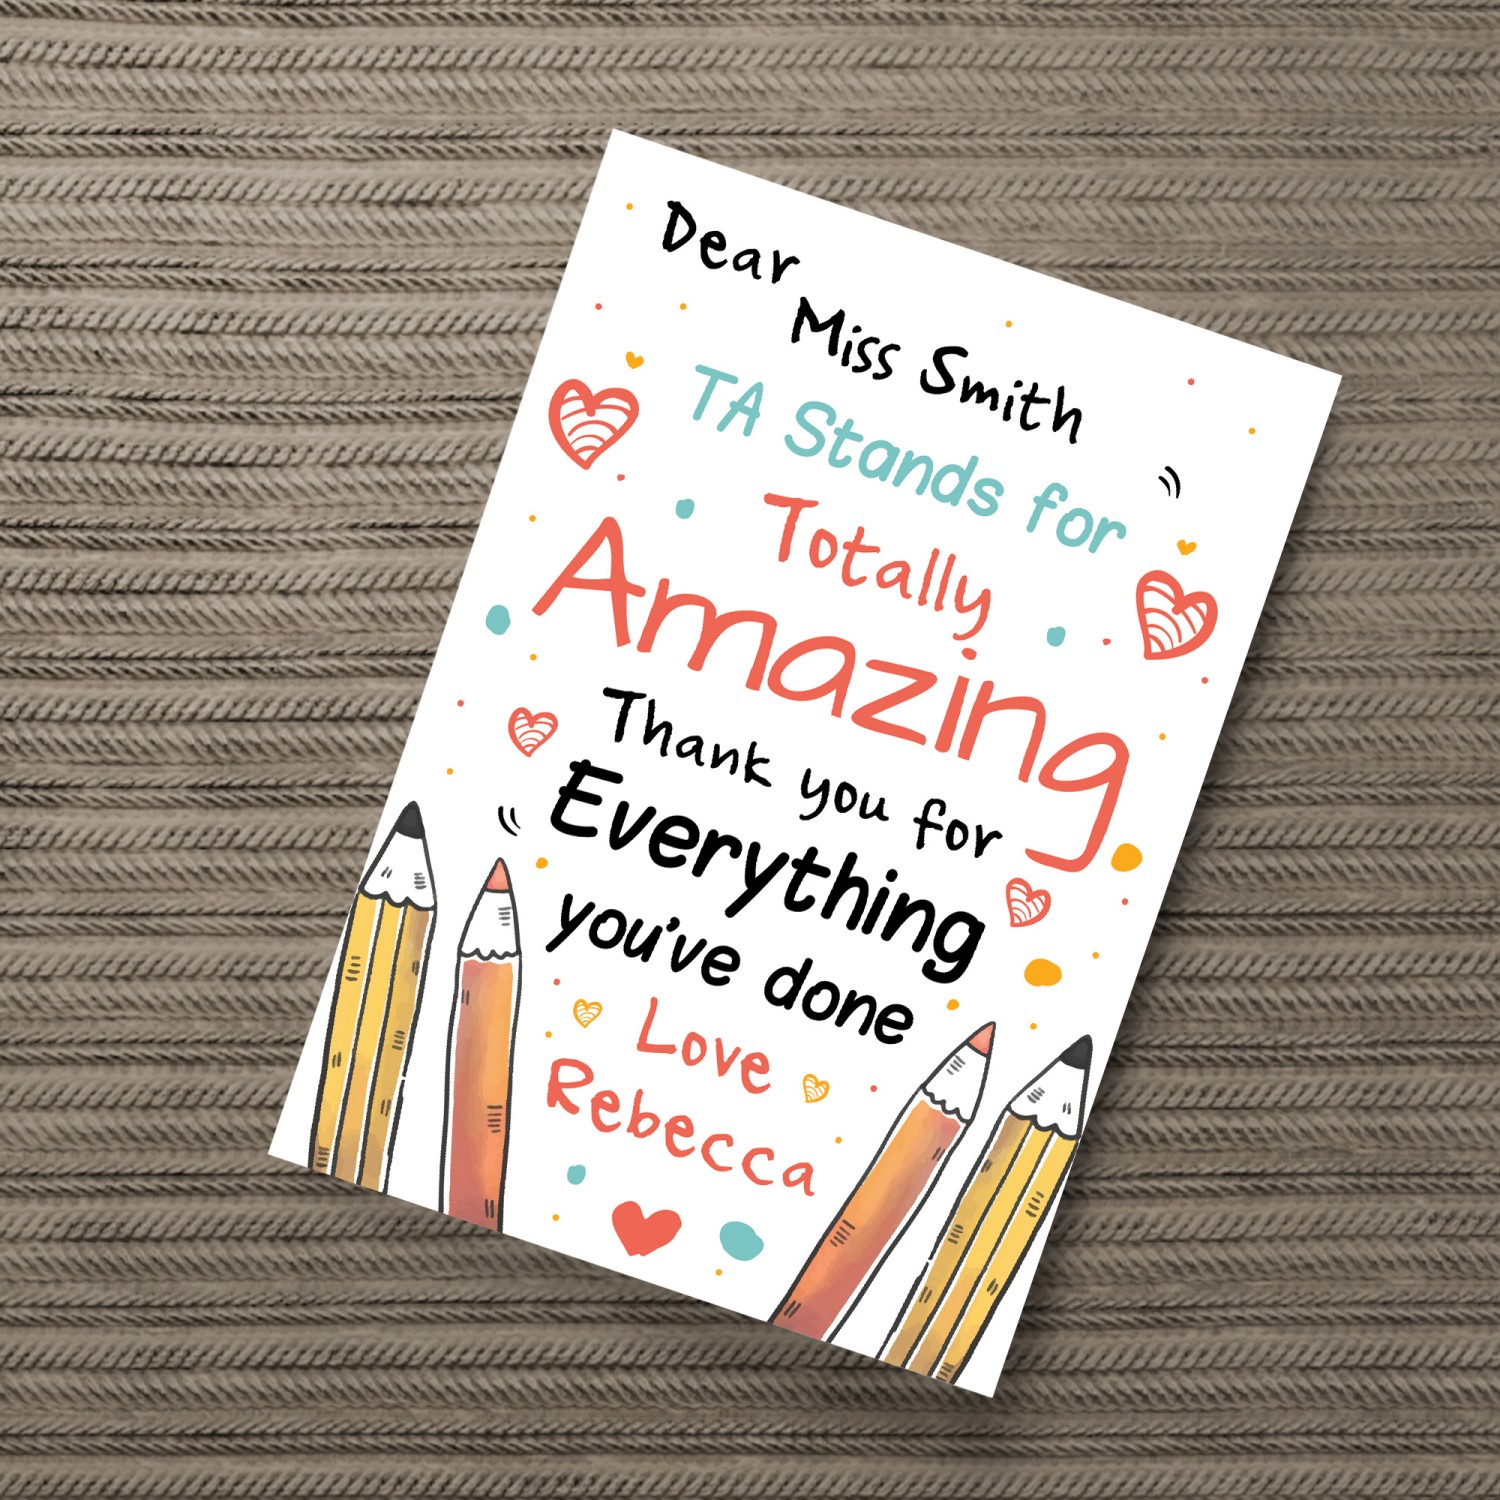 Dear
Miss Smith
TA Stands for
Totally
Amazing
Thank you for
Everything
you've done
Love
Rebecca